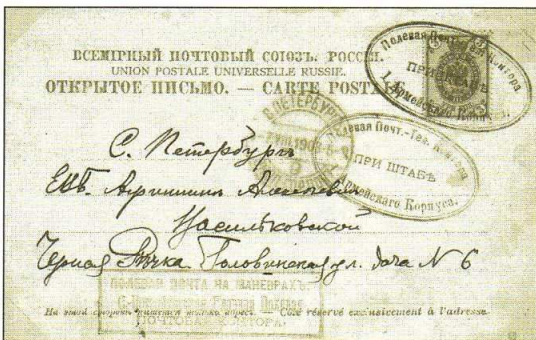 ВСЕМІРНЫЙ ПОЧТОВЫЙ СОЮЗЪ. РОССІЯ.
UNION POSTALE UNIVERSELLE RUSSIE.
ОТКРЫТОЕ ПИСЬМО. — CARTE POSTA
Полевая Почт.-Тел. Контора
ПРИ ШТАБѢ
1. Армейскаго Корпуса.
С.ПЕТЕРБУРГ
Полевая Почт.-Тел. Контора
ПРИ ШТАБѢ
Армейскаго Корпуса.
С. Петербургъ
ЕВБ.
Васильковской
Черная Рѣчка Головинская ул. дача N 6
ПОЛЕВАЯ ПОЧТА НА МАНЕВРАХЪ.
ПОЧТОВАЯ КОНТОРА.
На этой сторонѣ пишется только адресъ. — Côté réservé exclusivement à l'adresse.